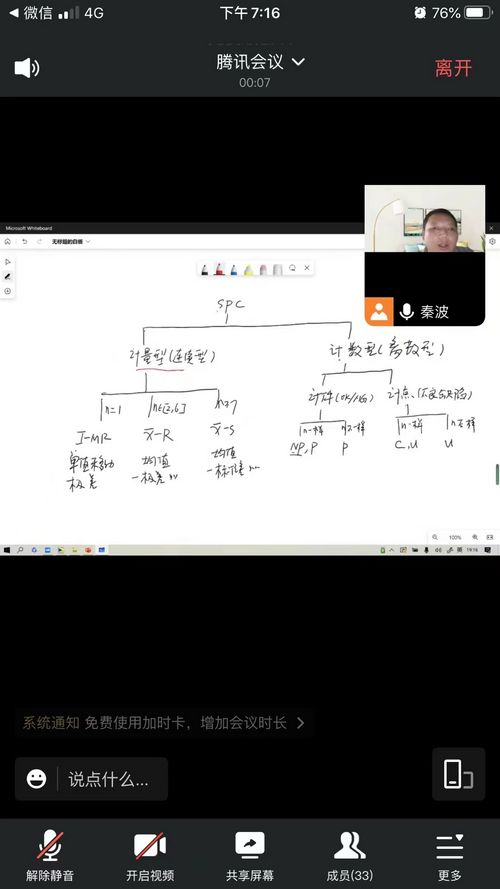 微信 4G 下午7:16 76%
腾讯会议
离开
00:07
秦波
Microsoft Whiteboard
无标题的白板
SPC
计量型(连续型) 计数型(离散型)
n=1 n∈[2,6] n≥7
计件(OK/NG) 计点
n一样 n不一样 n一样 n不一样
I-MR X̄-R X̄-S
NP,P P C,U U
单值移动 均值 均值
极差 -极差 -标准差
100%
19:16
系统通知 免费使用加时卡，增加会议时长
说点什么...
解除静音 开启视频 共享屏幕 成员(33) 更多